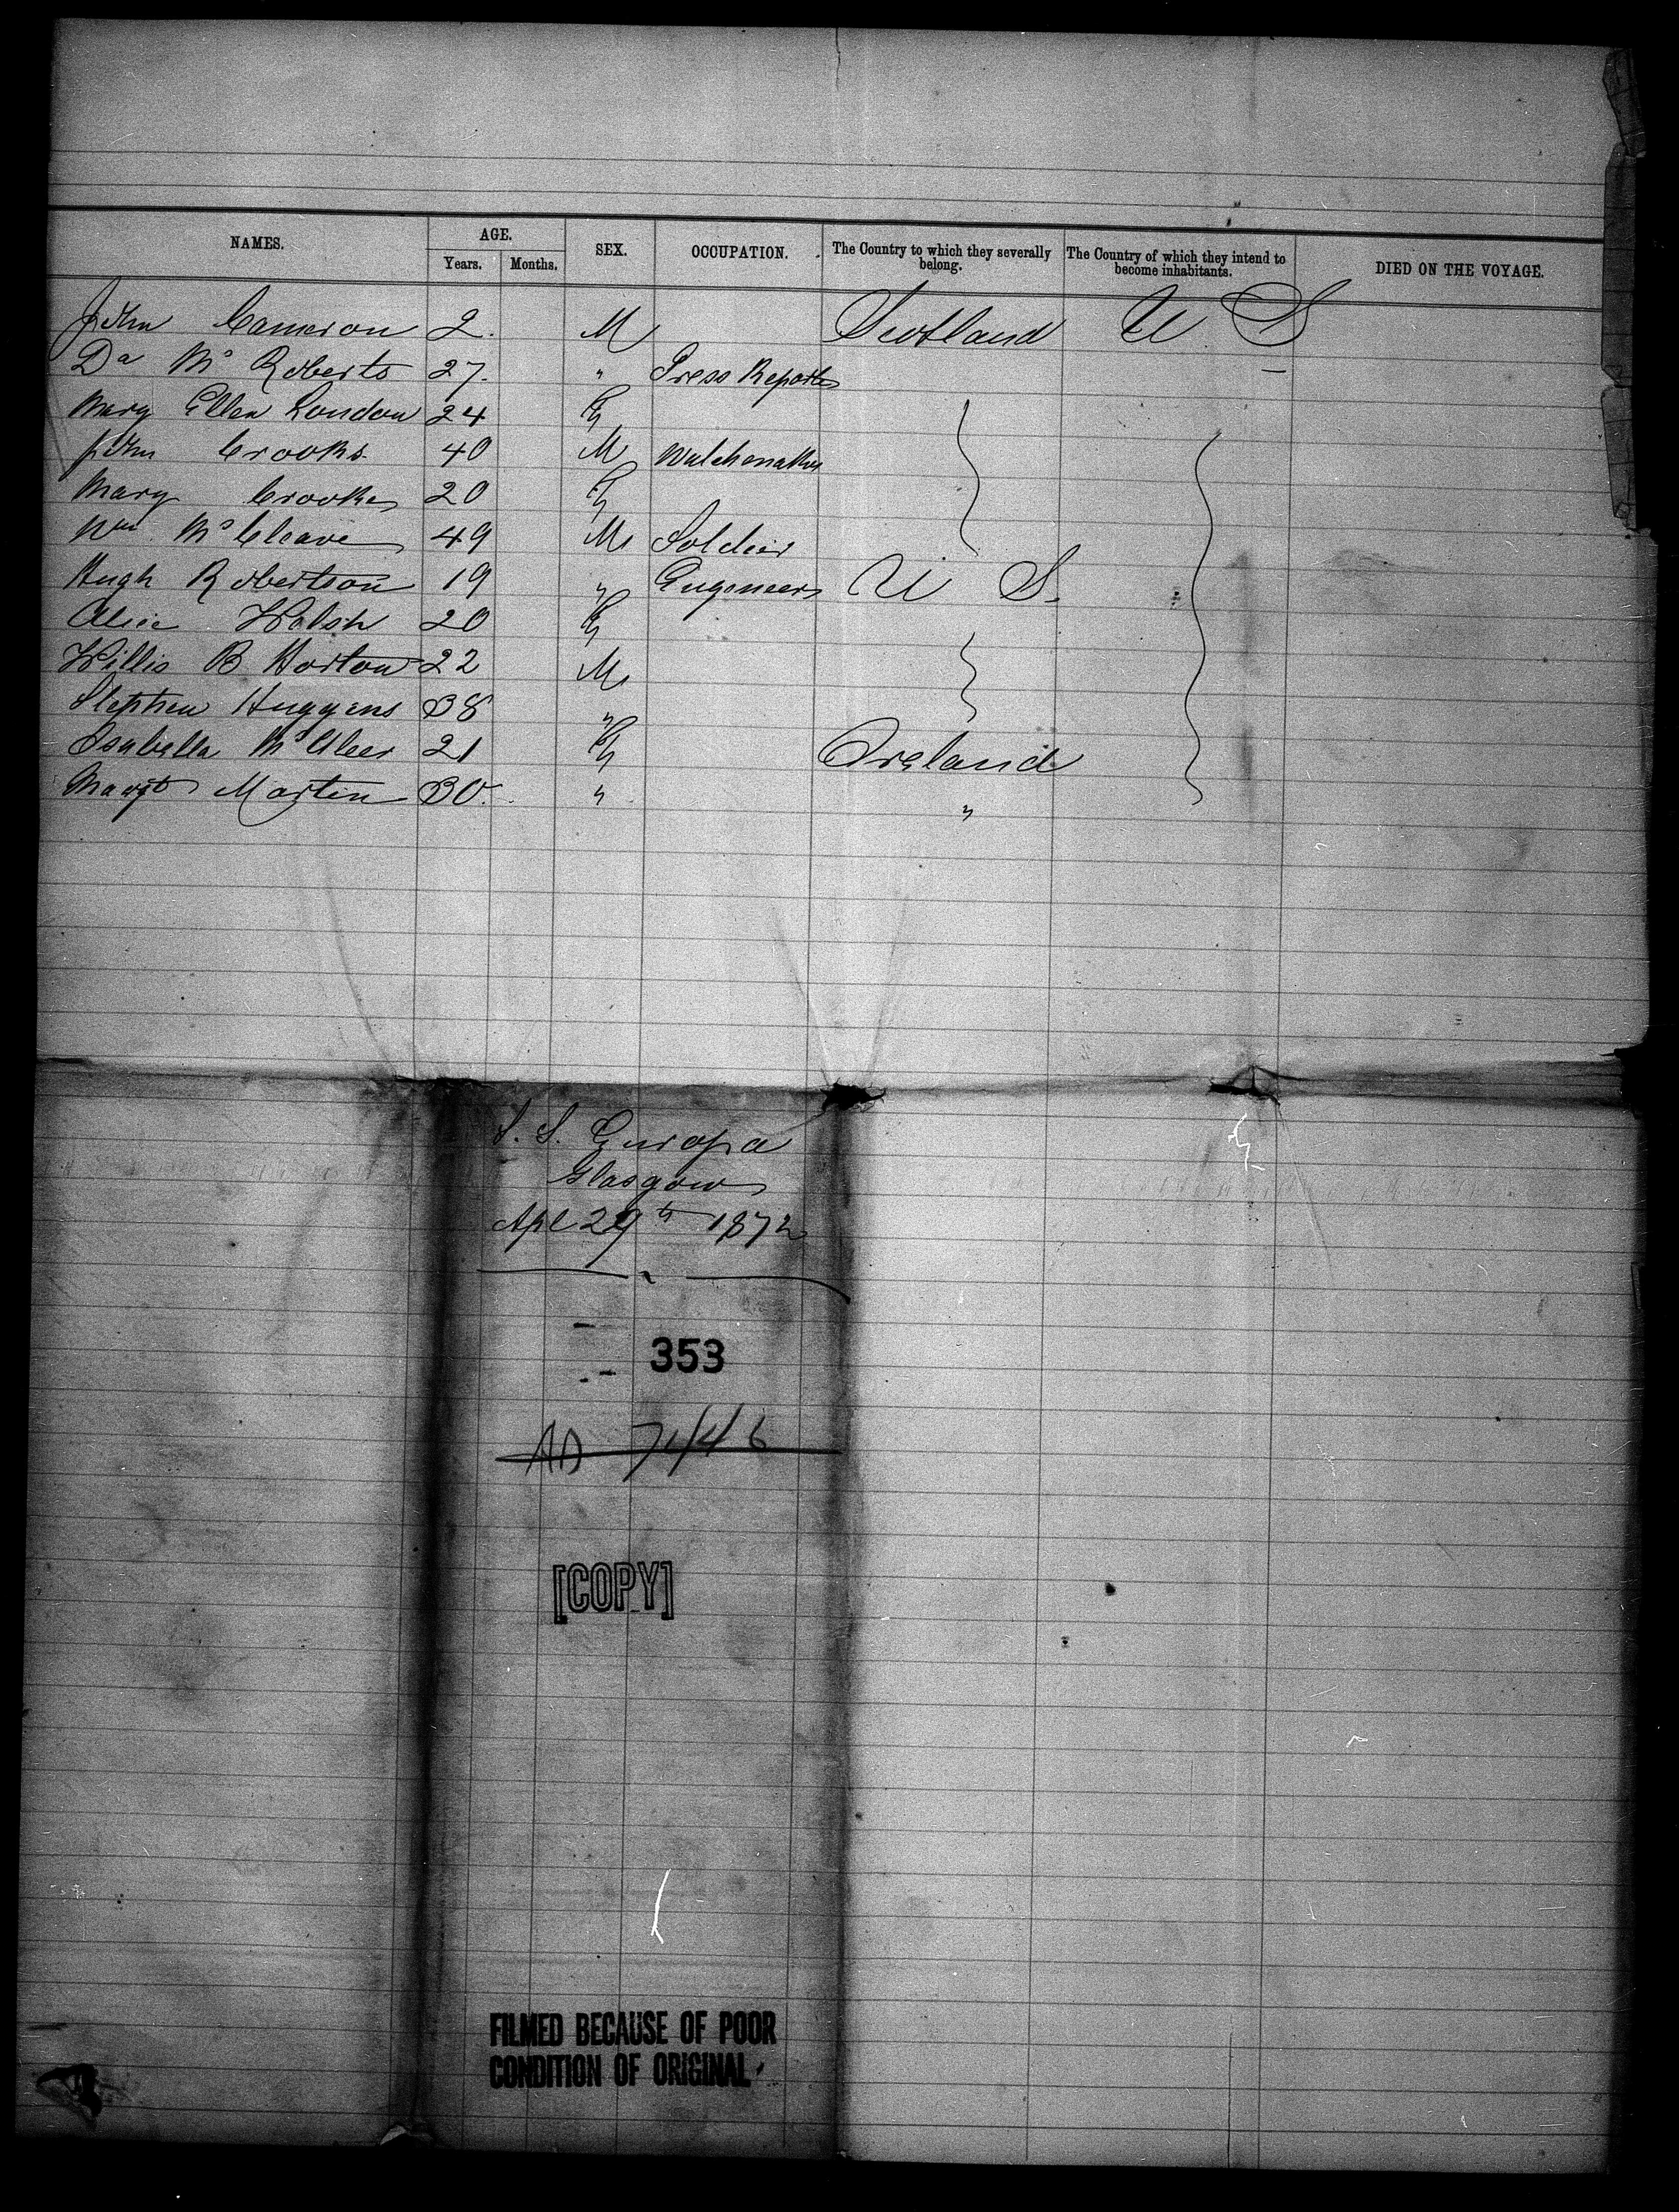 NAMES. AGE. SEX. OCCUPATION. The Country to which they severally belong. The Country of which they intend to become inhabitants. DIED ON THE VOYAGE.
Years. Months.
John Cameron 2. M Scotland U S
Da Mc Roberts 27. " Press Reporter
Mary Ellen London 24 F
John Crooks 40 M Watchmaker
Mary Crooks 20 F
Wm Mc Cleave 49 M Soldier
Hugh Robertson 19 " Engineers U S.
Alice Walsh 20 F
Willis B Horton 22 M
Stephen Huggens 38 "
Isabella McAleer 21 F Ireland
Margt Martin 30. " "
S. S. Europa
Glasgow
Apl 29th 1872
353
AD 7446
[COPY]
FILMED BECAUSE OF POOR
CONDITION OF ORIGINAL